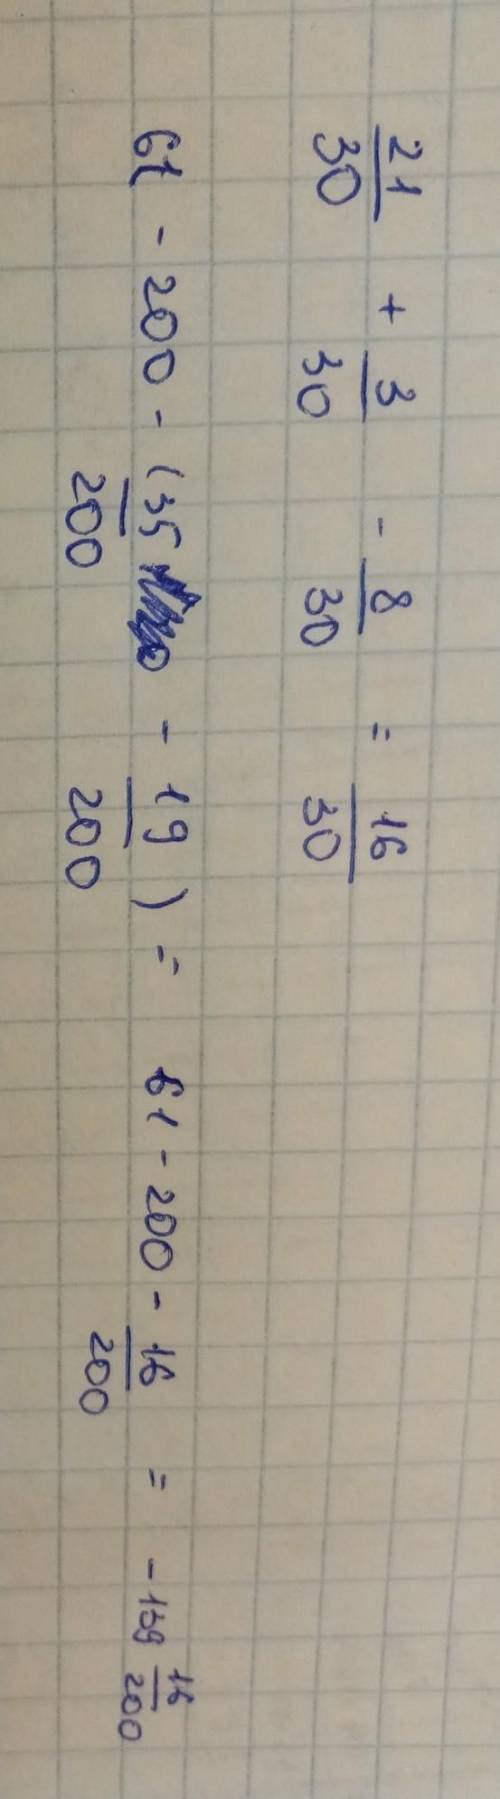 21/30 + 3/30 - 8/30 = 16/30
61 - 200 - (35/200 - 19/200) = 61 - 200 - 16/200 = -139 16/200